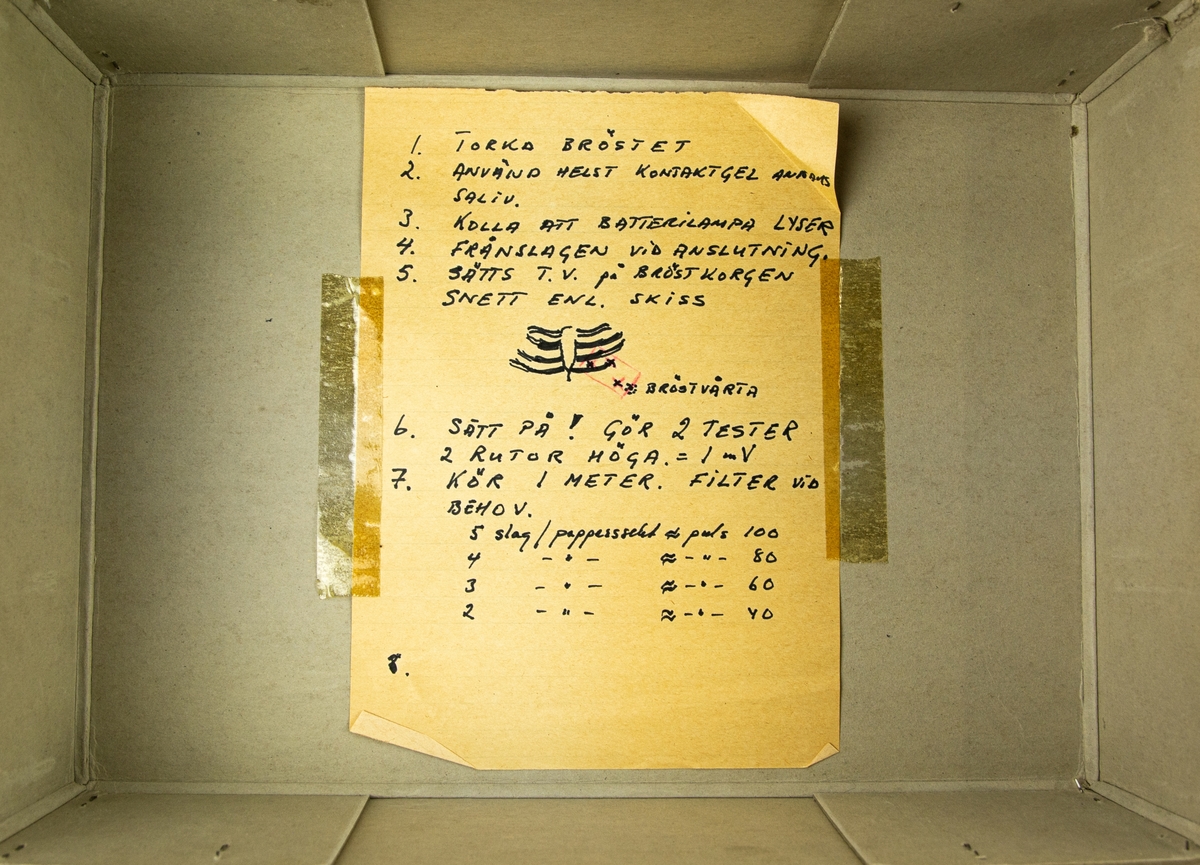 1. TORKA BRÖSTET
2. ANVÄND HELST KONTAKTGEL ANNARS
SALIV.
3. KOLLA ATT BATTERILAMPA LYSER
4. FRÅNSLAGEN VID ANSLUTNING.
5. SÄTTS T.V. på BRÖSTKORGEN
SNETT ENL. SKISS
x x
x x = BRÖSTVÅRTA
6. SÄTT PÅ! GÖR 2 TESTER
2 RUTOR HÖGA. = 1 mV
7. KÖR 1 METER. FILTER VID
BEHOV.
5 slag / papperssekt ≈ puls 100
4 - " - ≈ - " - 80
3 - " - ≈ - " - 60
2 - " - ≈ - " - 40
8.